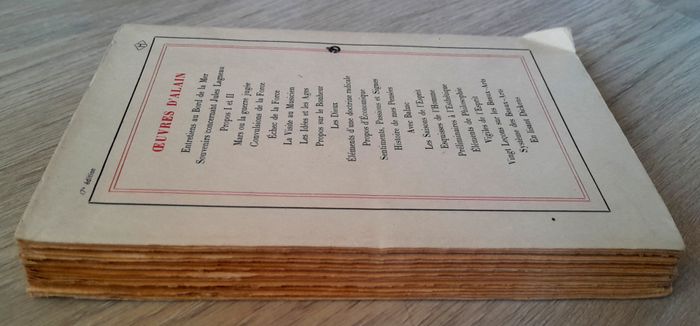 ŒUVRES D'ALAIN
Entretiens au Bord de la Mer
Souvenirs concernant Jules Lagneau
Propos I et II
Mars ou la guerre jugée
Convulsions de la Force
Échec de la Force
La Visite au Musicien
Les Idées et les Ages
Propos sur le Bonheur
Les Dieux
Éléments d'une doctrine radicale
Propos d'Économique
Sentiments, Passions et Signes
Histoire de mes Pensées
Avec Balzac
Les Saisons de l'Esprit
Esquisses de l'Homme
Préliminaires à l'Esthétique
Éléments de Philosophie
Vigiles de l'Esprit
Vingt Leçons sur les Beaux-Arts
Système des Beaux-Arts
En lisant Dickens
édition